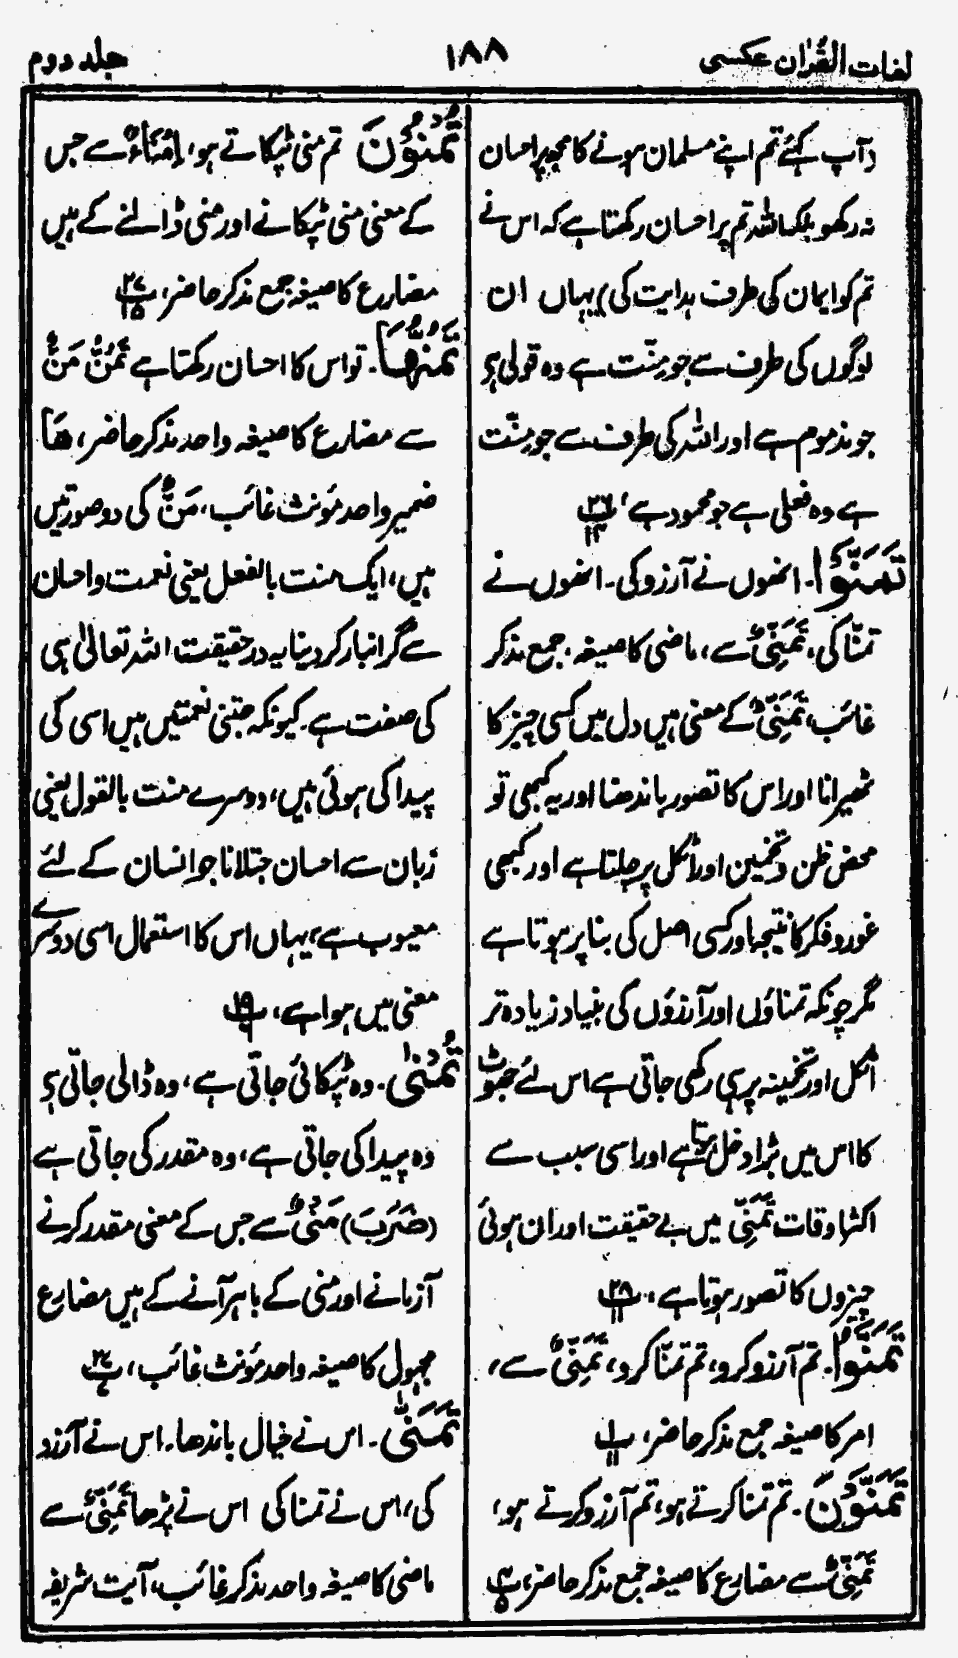 لغات القرآن عکسی
۱۸۸
جلد دوم
(آپ کہئے تم اپنے مسلمان ہونے کا مجھ پر احسان
نہ رکھو بلکہ اللہ تم پر احسان رکھتا ہے کہ اس نے
تم کو ایمان کی طرف ہدایت کی) یہاں ان
لوگوں کی طرف سے جو منّت ہے وہ قولی ہے
جو مذموم ہے اور اللہ کی طرف سے جو منّت
ہے وہ فعلی ہے جو محمود ہے، پ ۲۶ ۱۴
تَمَنَّوْا۔ انھوں نے آرزو کی۔ انھوں نے
تمنّا کی، تَمَنِّیٌ سے، ماضی کا صیغہ، جمع مذکر
غائب، تَمَنِّیٌ کے معنی ہیں دل میں کسی چیز کا
ٹھیرانا اور اس کا تصور باندھنا اور یہ کبھی تو
محض ظن و تخمین اور اٹکل پر چلتا ہے اور کبھی
غور و فکر کا نتیجہ اور کسی اصل کی بنا پر ہوتا ہے
مگر چونکہ تمناؤں اور آرزؤں کی بنیاد زیادہ تر
اٹکل اور تخمینہ پر ہی رکھی جاتی ہے اس لئے جھوٹ
کا اس میں بڑا دخل رہتا ہے اور اسی سبب سے
اکثر اوقات تَمَنِّی میں بے حقیقت اور ان ہوئی
چیزوں کا تصور ہوتا ہے، پ ۲۸ ۱۱
تَمَنَّوُا۔ تم آرزو کرو، تم تمنّا کرو، تَمَنِّیٌ سے،
امر کا صیغہ جمع مذکر حاضر، پ ۱ ۱۱
تَمَنَّوْنَ۔ تم تمنا کرتے ہو، تم آرزو کرتے ہو،
تَمَنِّیٌ سے مضارع کا صیغہ جمع مذکر حاضر، پ ۴ ۵
تُمْنُوْنَ تم منی ٹپکاتے ہو، اِمْنَاءٌ سے جس
کے معنی منی ٹپکانے اور منی ڈالنے کے ہیں
مضارع کا صیغہ جمع مذکر حاضر، پ ۲۷ ۱۵
تَمُنُّهَا۔ تو اس کا احسان رکھتا ہے تَمُنُّ مَنٌّ
سے مضارع کا صیغہ واحد مذکر حاضر، هَا
ضمیر واحد مؤنث غائب، مَنٌّ کی دو صورتیں
ہیں، ایک منت بالفعل یعنی نعمت و احسان
سے گرانبار کر دینا یہ درحقیقت اللہ تعالیٰ ہی
کی صفت ہے۔ کیونکہ جتنی نعمتیں ہیں اسی کی
پیدا کی ہوئی ہیں، دوسرے منت بالقول یعنی
زبان سے احسان جتلانا جو انسان کے لئے
معیوب ہے، یہاں اس کا استعمال اسی دوسرے
معنی میں ہوا ہے، پ ۱۹
تُمْنٰی۔ وہ ٹپکائی جاتی ہے، وہ ڈالی جاتی ہے
وہ پیدا کی جاتی ہے، وہ مقدر کی جاتی ہے
(ضَرَبَ) مَنْیٌ سے جس کے معنی مقدر کرنے
آزمانے اور منی کے باہر آنے کے ہیں مضارع
مجہول کا صیغہ واحد مؤنث غائب، پ ۲۷
تَمَنّٰی۔ اس نے خیال باندھا۔ اس نے آرزو
کی، اس نے تمنا کی اس نے پڑھا تَمَنِّیٌ سے
ماضی کا صیغہ واحد مذکر غائب، آیت شریفہ